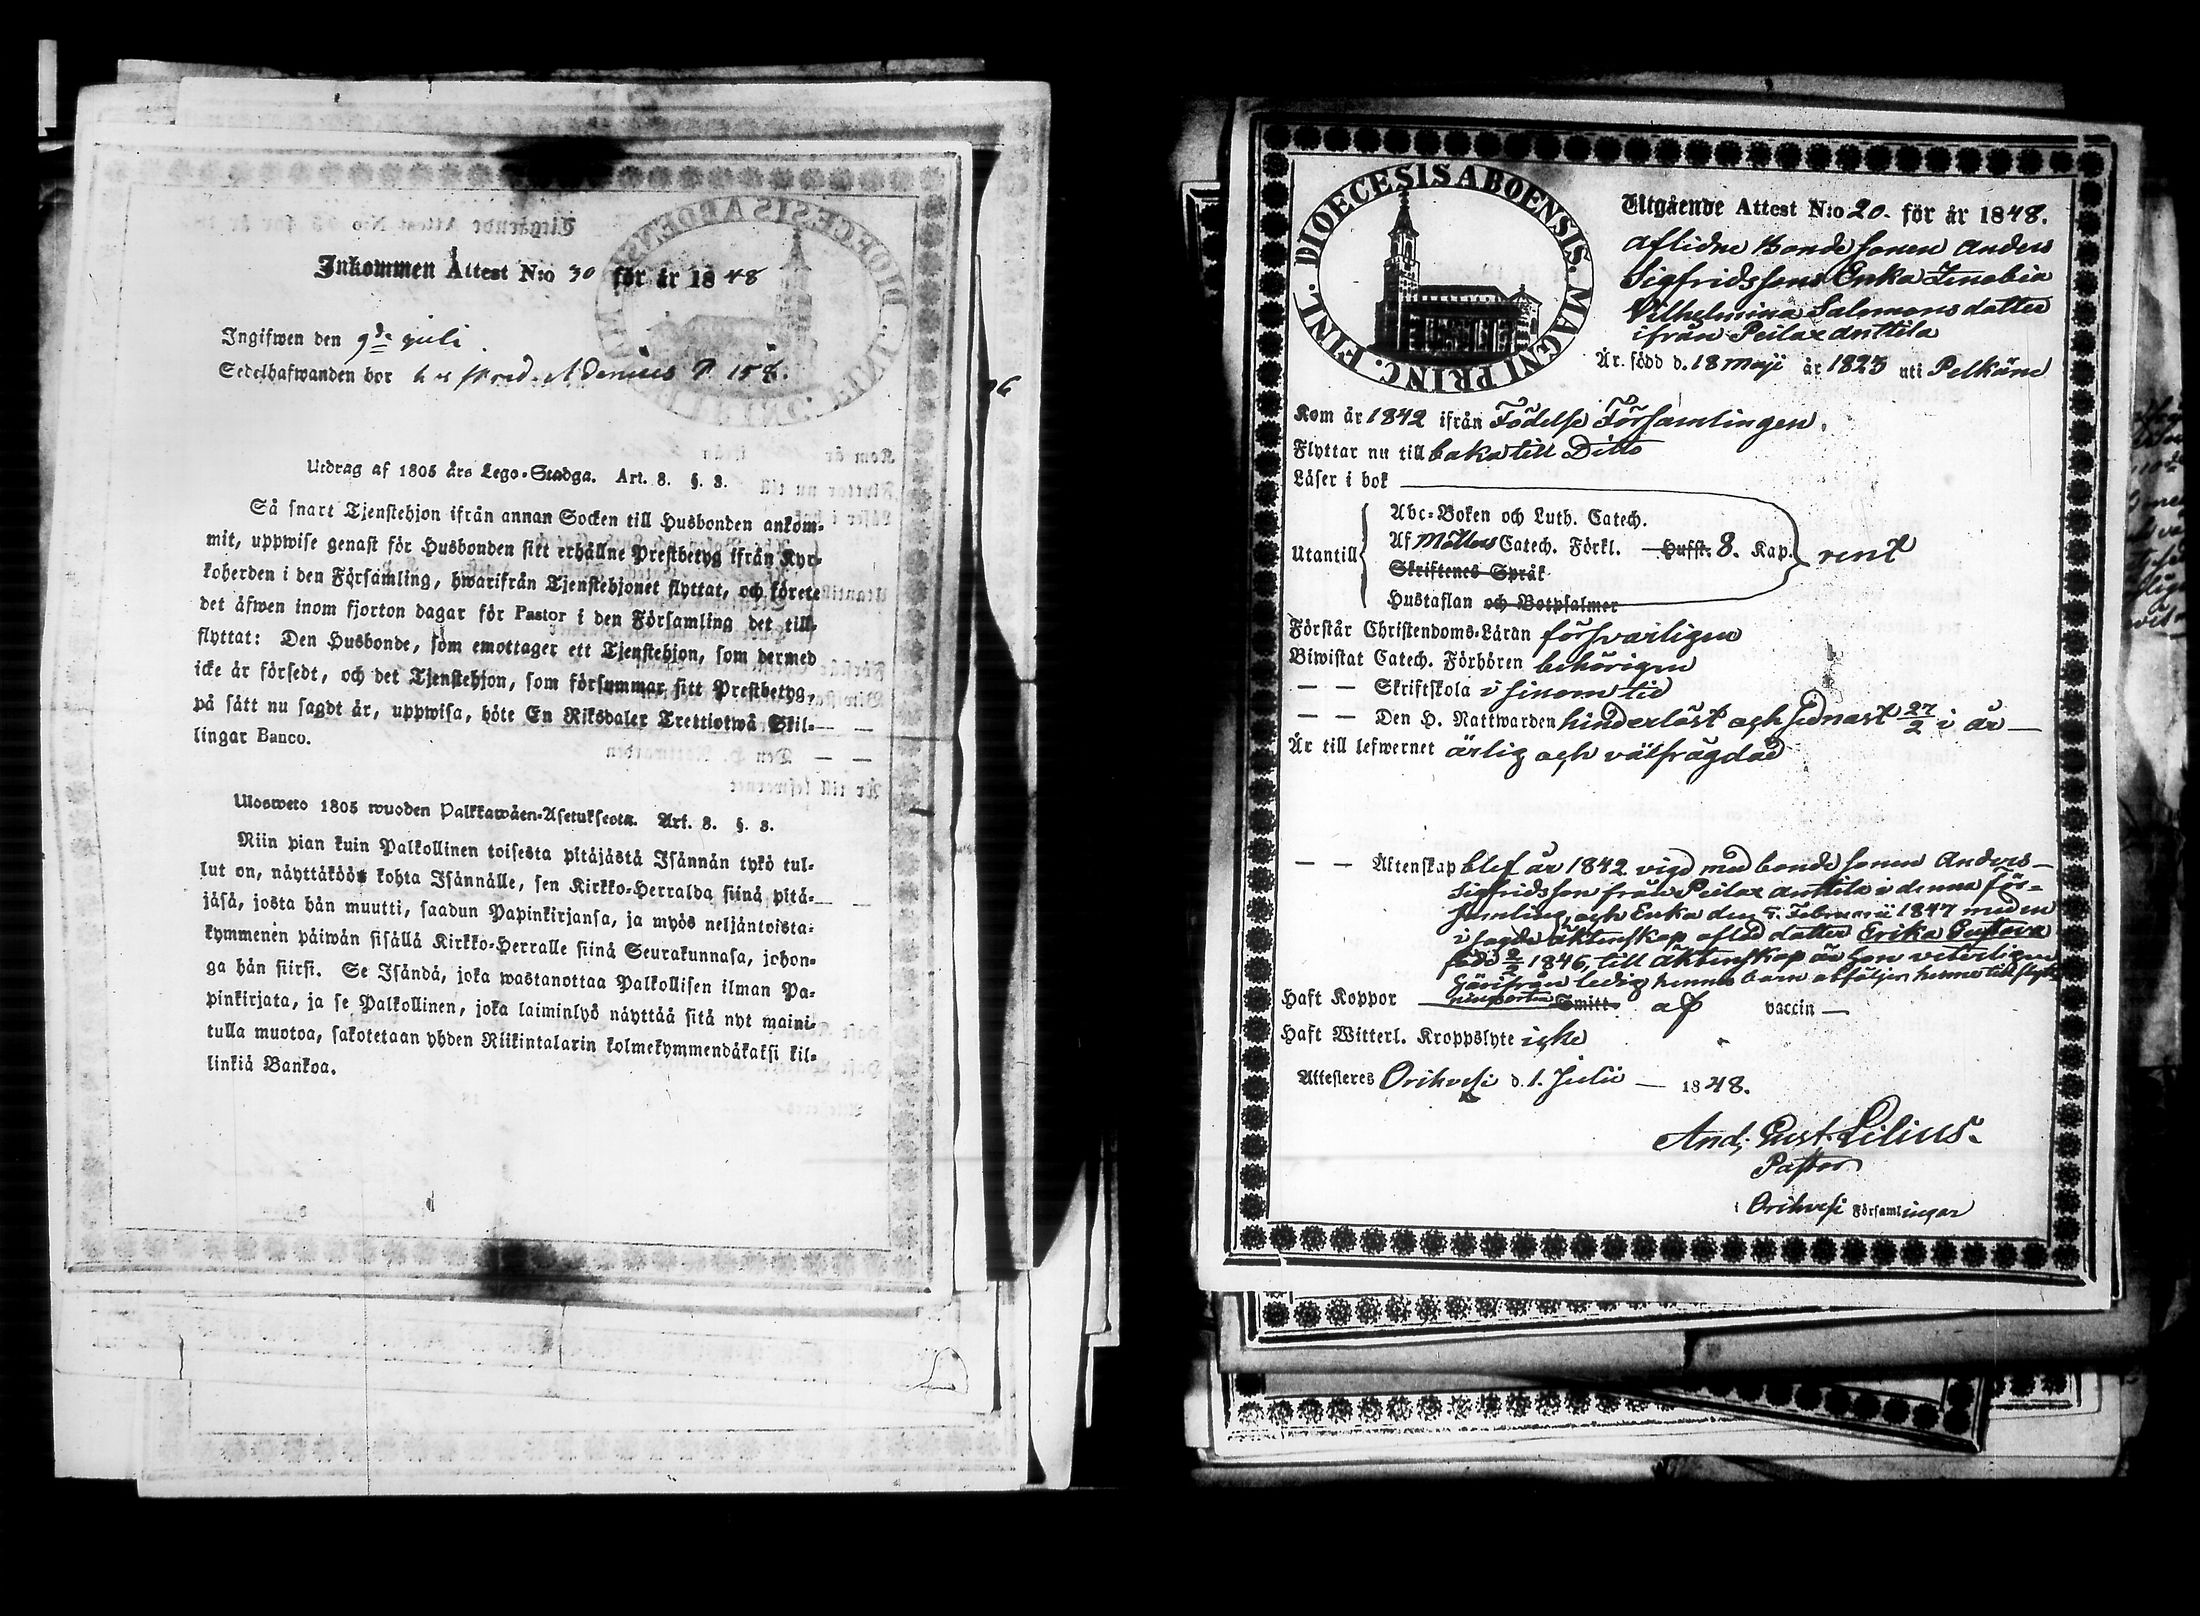 Inkommen Attest N:o 30 för år 1848
Ingifwen den 9de juli
Sedelhafwanden bor
Utdrag af 1805 års Lego-Stadga. Art. 8. §. 3.
Så snart Tjenstehjon ifrån annan Socken till Husbonden ankom-
mit, uppwise genast för Husbonden sitt erhållne Prestbetyg ifrån Kyr-
koherden i den Församling, hwarifrån Tjenstehjonet flyttat, och förete
det äfwen inom fjorton dagar för Pastor i den Församling det till-
flyttat: Den Husbonde, som emottager ett Tjenstehjon, som dermed
icke är försedt, och det Tjenstehjon, som försummar sitt Prestbetyg,
på sätt nu sagdt är, uppwisa, böte En Riksdaler Trettiotwå Skil-
lingar Banco.
Ulosweto 1805 wuoden Palkkawäen-Asetuksesta. Art. 8. §. 3.
Niin pian kuin Palkollinen toisesta pitäjästä Isännän tykö tul-
lut on, näyttäköön kohta Isännälle, sen Kirkko-Herralda siinä pitä-
jäsä, josta hän muutti, saadun Papinkirjansa, ja myös neljäntoista-
kymmenen päiwän sisällä Kirkko-Herralle siinä Seurakunnasa, johon-
ga hän siirsi. Se Isändä, joka wastanottaa Palkollisen ilman Pa-
pinkirjata, ja se Palkollinen, joka laiminlyö näyttää sitä nyt maini-
tulla muotoa, sakotetaan yhden Riikintalarin kolmekymmendäkaksi kil-
linkiä Bankoa.
DIOECESIS ABOENSIS. MAGNI PRINC. FINL.
Utgående Attest N:o 20. för år 1848.
Aflidne Bondesonen Anders
Sigfridssons Enka Zenobia
Vilhelmina Salomonsdotter
ifrån Peilax Anttila
Är född d. 18 Maji år 1823 uti Pelkäne
Kom år 1842 ifrån Födelse Församlingen.
Flyttar nu till baka till Ditto
Läser i bok
Abc-Boken och Luth. Catech.
Utantill Af Möllers Catech. Förkl. Hufst. 8. Kap. rent
Skriftenes Språk
Hustaflan och Botpsalmer
Förstår Christendoms-Läran försvarligen
Biwistat Catech. Förhören behörigen
— — Skriftskola i sinom tid
— — Den H. Nattwarden hinderlöst och sednast 27/2 i år —
Är till lefwernet ärlig och välfrägdad
— — Äktenskap blef år 1842 vigd med bondesonen Anders
Sigfridsson från Peilax Anttila i denna för-
samling, och Enka den 5. Februarii 1847 med en
i sagde äktenskap aflad dotter Erika Gustava
född 2/2 1846, till äktenskap är hon veterligen
härifrån ledig hennes barn åtföljer henne
Haft Koppor Smitt af vaccin —
Haft Witterl. Kroppslyte icke
Attesteres Orihvesi d. 1. Julii — 1848.
And. Gust. Lilius.
Pastor
i Orihvesi Församlingar